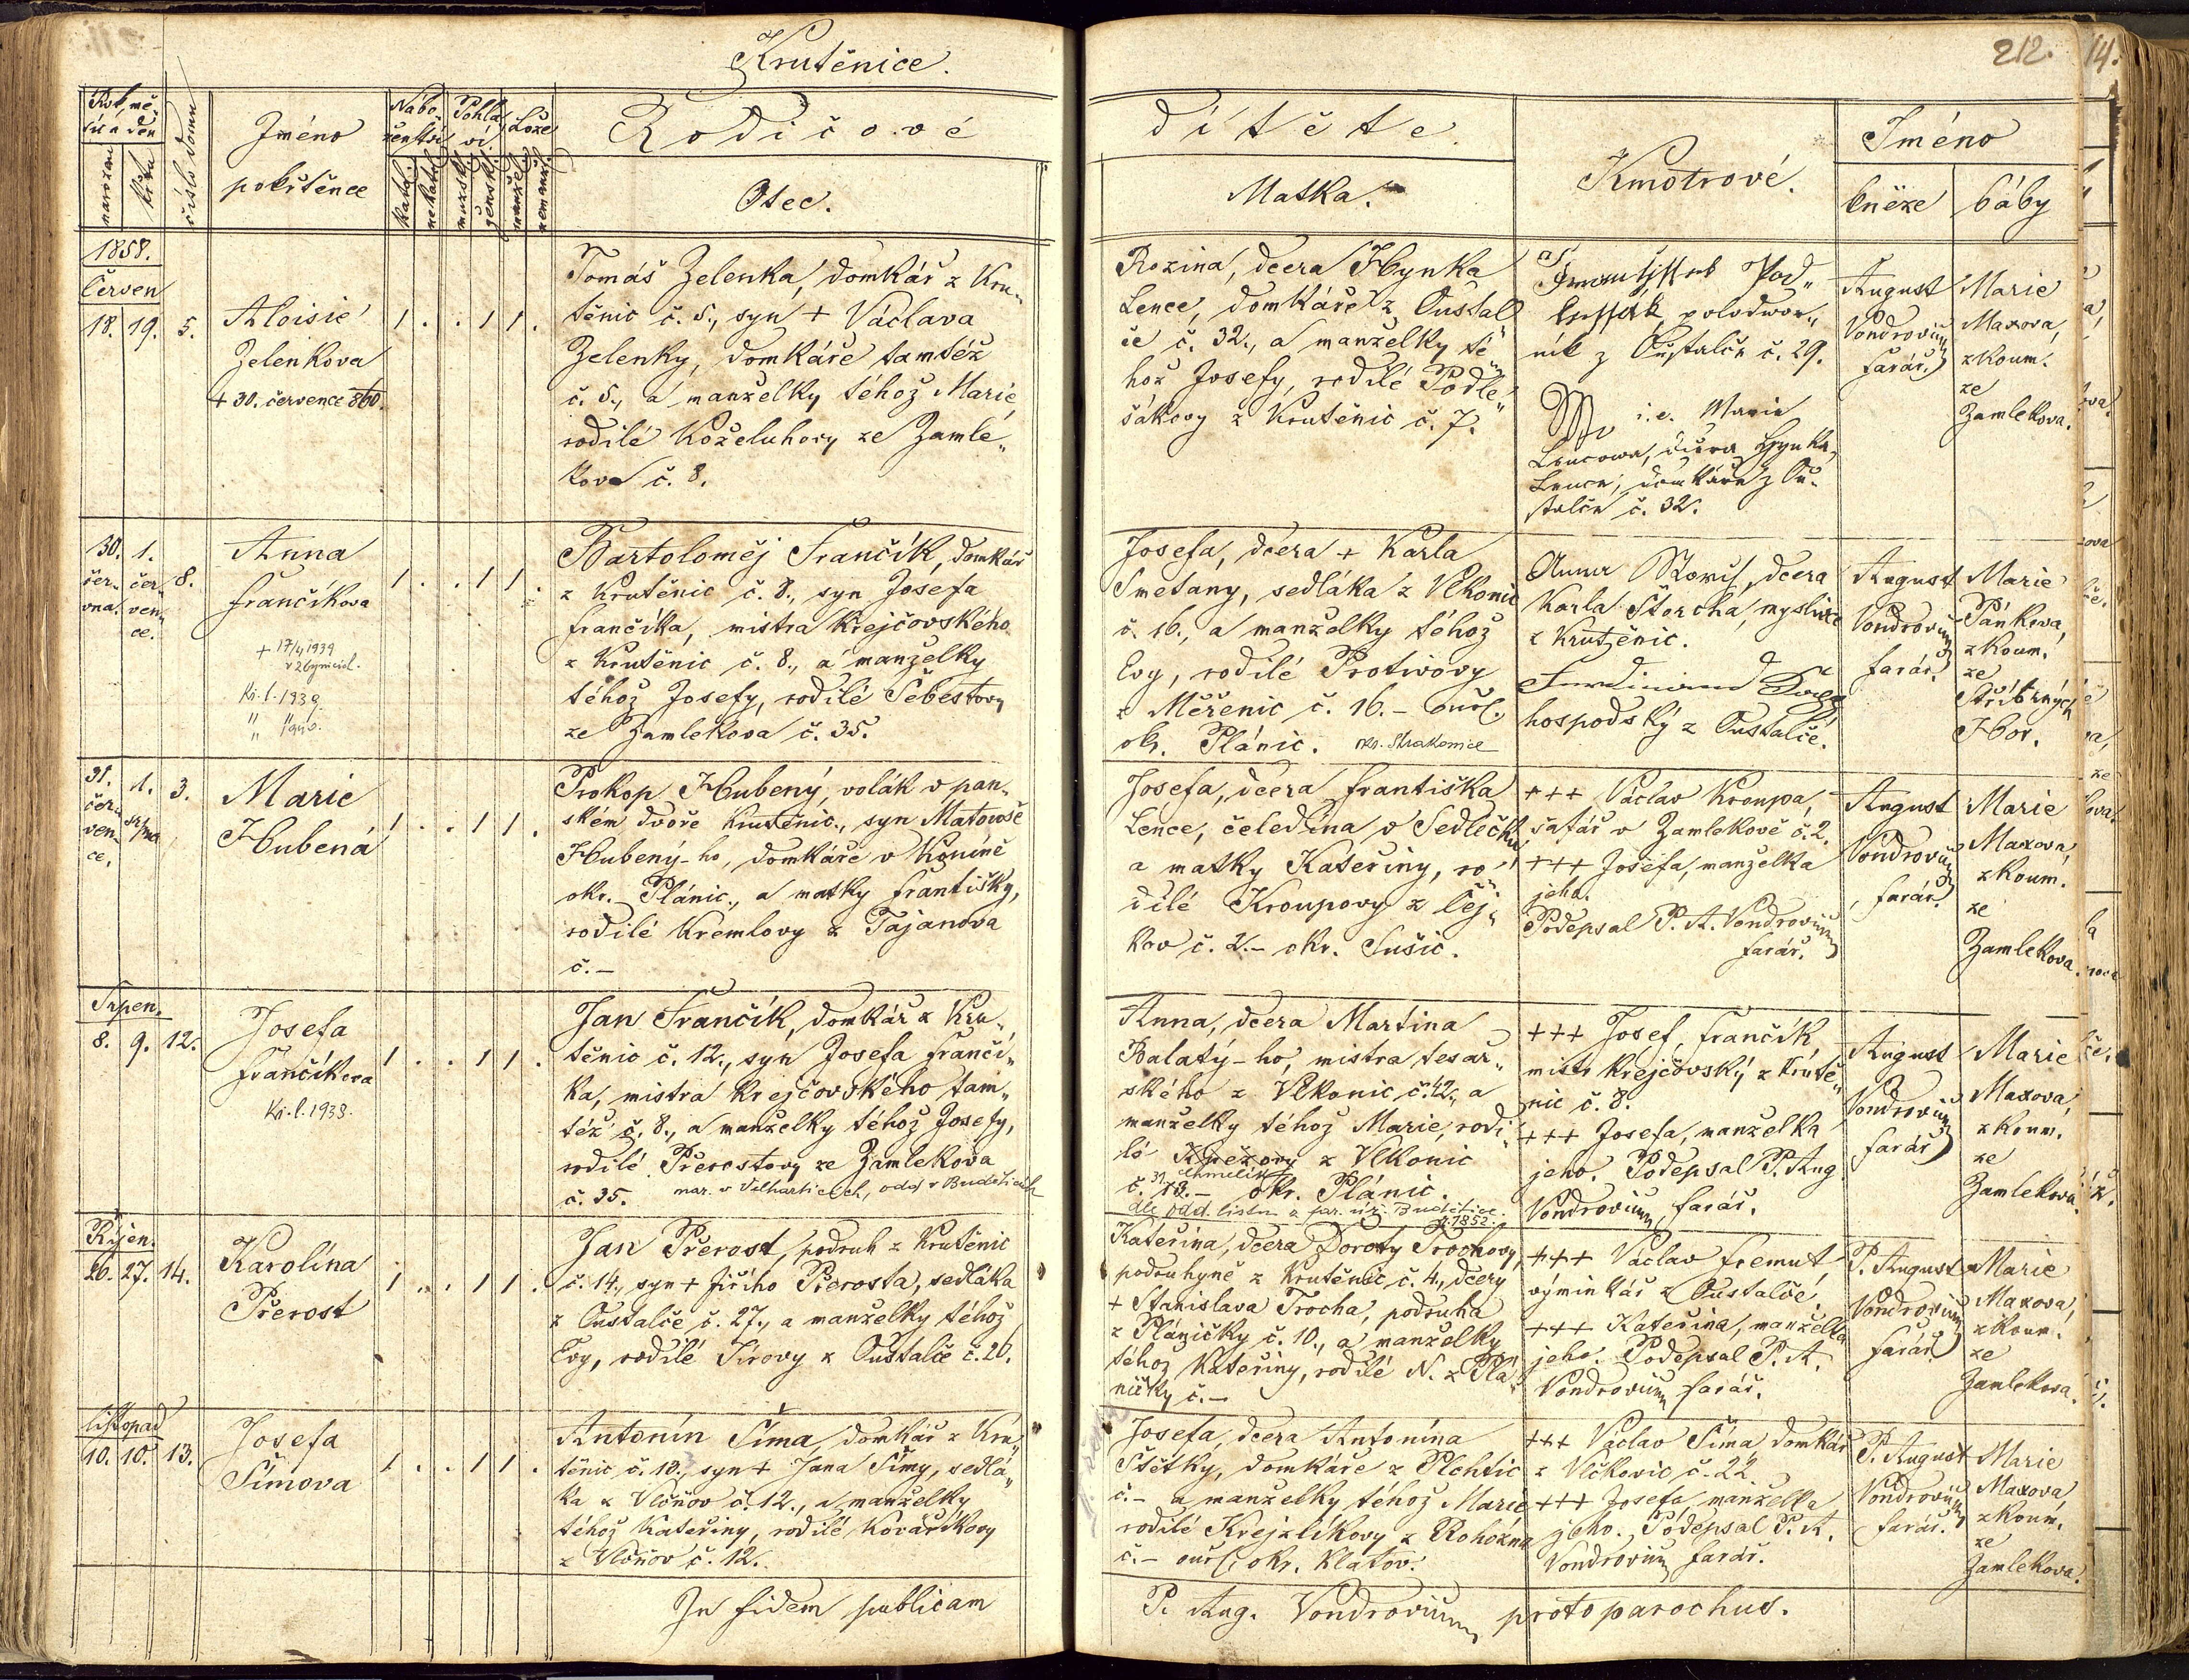 Krutěnice.
212.
14.
Rok, mě-
síc a den
narození
křtu
číslo domu
Jméno
pokřtěnce
Nábo-
ženství
katol.
nekatol.
Pohla-
ví
mužské
ženské
Lože
manžel.
nemanž.
Rodičové
Otec.
dítěte
Matka.
Kmotrové.
Jméno
kněze
báby
1858.
Červen
18. 19. 5.
Aloisie
Zelenkova
+ 30. července 860.
1 . . 1 1 .
Tomáš Zelenka, domkář z Kru-
těnic č. 5., syn + Václava
Zelenky, domkáře tamtéž
č. 5., a manželky téhož Marie,
rodilé Koželuhovy ze Zamlé-
kova č. 8.
Rozina, dcera Hynka
Lence, domkáře z Oustal
če č. 32., a manželky té
hož Josefy, rodilé Podle-
šákovy z Krutěnic č. 7.
Pod-
polodwor-
ník z Oustalče č. 29.
i. e. Marie
Lencowa, dcera Hynka
Lence, domkáře z Ou-
stalče č. 32.
August
Vondrovium
farář.
Marie
Maxová,
zkoum.
ze
Zamlekova.
30. 1.
čer- čer- 8.
vna. ven-
ce.
Anna
Frančíkova
+ 17/4 1939
v Zbynicích.
Kř. l. 1939.
" " 1940.
1 . . 1 1 .
Bartoloměj Frančík, domkář
z Krutěnic č. 8., syn Josefa
Frančíka, mistra krejčovského
z Krutěnic č. 8., a manželky
téhož Josefy, rodilé Šebestovy
ze Zamlekova č. 35.
Josefa, dcera + Karla
Smetany, sedláka z Vlkonic
č. 16., a manželky téhož
Evy, rodilé Protivovy
z Měřenic č. 16. – ouřl.
okr. Plánic. okr. Strakonice
Anna Storch, dcera
Karla Storcha, myslivce
z Krutěnic.
Ferdinand
hospodský z Oustalče.
August
Vondrovium
farář.
Marie
Pánkova,
zkoum.
ze
Stříbrných
Hor.
31. 1. 3.
čer- srpna
ven-
ce.
Marie
Hubená
1 . . 1 1 .
Prokop Hubený, volák v pan-
ském dvoře Krutěnic., syn Matouše
Hubený-ho, domkáře v Koníně
okr. Plánic., a matky Františky,
rodilé Kremlovy z Tajanova
č. –
Josefa, dcera Františka
Lence, čeledína v Sedlečku
a matky Kateřiny, ro-
dilé Kroupovy z Čej-
kov č. 2. – okr. Sušic.
+++ Václav Kroupa,
šafář v Zamlekově č. 2.
+++ Josefa, manželka
jeho.
Podepsal P. A. Vondrovium
farář.
August
Vondrovium
farář.
Marie
Maxova
zkoum.
ze
Zamlekova.
Srpen.
8. 9. 12.
Josefa
Frančíkova
Kř. l. 1938.
1 . . 1 1 .
Jan Frančík, domkář z Kru-
těnic č. 12., syn Josefa Frančí-
ka, mistra krejčovského tam-
též č. 8., a manželky téhož Josefy,
rodilé Přerostovy ze Zamlekova
č. 35. nar. v Velharticích, odd. v Buděticích
Anna, dcera Martina
Balatý-ho, mistra tesař-
ského z Vlkonic č. 42., a
manželky téhož Marie, rodi-
lé z Vlkonic
č. okr. Plánic.
dle odd. listu z far. úř. Budětice
1852.
+++ Josef Frančík
mistr krejčovský z Krutě-
nic č. 8.
+++ Josefa, manželka
jeho. Podepsal P. Aug.
Vondrovium, farář.
August
Vondrovium
farář
Marie
Maxova,
zkoum.
ze
Zamlekova.
Říjen.
26. 27. 14.
Karolína
Přerost
1 . . 1 1 .
Jan Přerost, podruh z Krutěnic
č. 14., syn + Jiřího Přerosta, sedláka
z Oustalče č. 27., a manželky téhož
Evy, rodilé Sirovy z Oustalče č. 26.
Kateřina, dcera Doroty Trochovy,
podruhyně z Krutěnic č. 4., dcery
+ Stanislava Trocha, podruha
z Pláničky č. 10., a manželky
téhož Kateřiny, rodilé N. z Plá-
ničky č. –
+++ Václav Fremut,
výminkář z Oustalče,
+++ Kateřina, manželka
jeho. Podepsal P. A.
Vondrovium, farář.
P. August
Vondrovium
farář.
Marie
Maxova,
zkoum.
ze
Zamlekova.
Listopad
10. 10. 13.
Josefa
Šímova
1 . . 1 1 .
Antonín Šíma, domkář z Kru-
těnic č. 13., syn + Jana Šímy, sedlá-
ka z Vlčňov č. 12., a manželky
téhož Kateřiny, rodilé Kovaříkovy
z Vlčňov č. 12.
Josefa, dcera Antonína
Štětky, domkáře z Plchtic
č. – a manželky téhož Marie
rodilé Krejzlíkovy z Rohozna
č. – ouřl. okr. Klatov.
+++ Václav Šíma, domkář
z Vlčkovic č. 22.
+++ Josefa, manželka
jeho. Podepsal P. A.
Vondrovium farář.
P. August
Vondrovium
farář.
Marie
Maxova
zkoum.
ze
Zamlekova.
In fidem publicam
P. Aug. Vondrovium protoparochus.